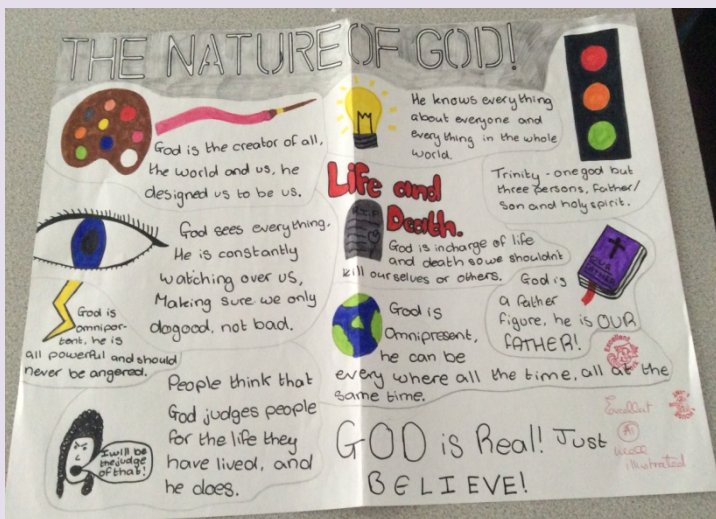 THE NATURE OF GOD!
God is the creator of all,
the world and us, he
designed us to be us.
He knows everything
about everyone and
everything in the whole
world.
Trinity - one god but
three persons, father/
son and holy spirit.
God sees everything.
He is constantly
watching over us,
Making sure we only
dogood, not bad.
Life and
Death.
God is incharge of life
and death so we shouldnt
kill ourselves or others.
God is
a father
figure, he is OUR
FATHER!
God is
omnipor-
tent, he is
all powerful and should
never be angered.
God is
Omnipresent,
he can be
every where all the time, all at the
same time.
I will be
the judge
of that!
People think that
God judges people
for the life they
have lived, and
he does.
GOD is Real! Just
BELIEVE!
Excellent
A1
well
illustrated